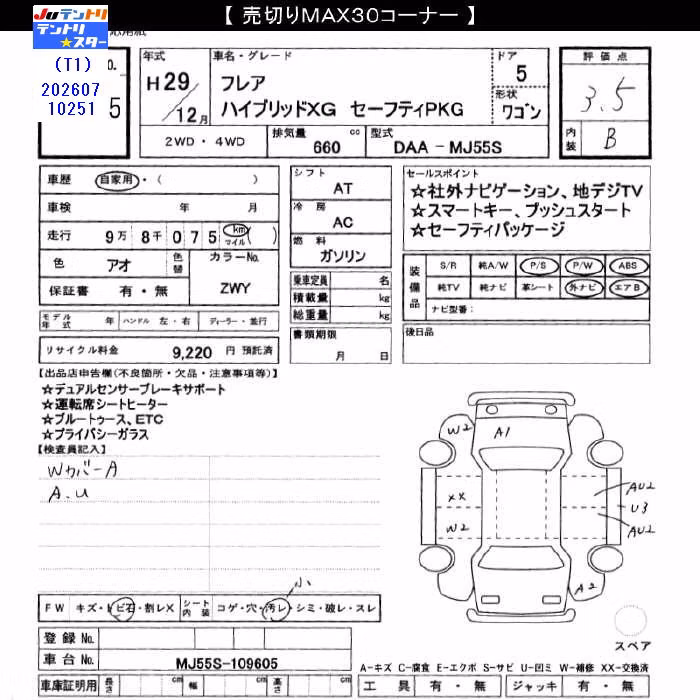 【 売切りMAX30コーナー 】
JUテントリ
テントリ
★スター
(T1)
202607
10251
o.
5
年式
H29
12月
車名・グレード
フレア
ハイブリッドXG セーフティPKG
ドア
5
形状
ワゴン
評価点
3.5
内装
B
2WD・4WD
排気量
660
cc
型式
DAA - MJ55S
車歴
自家用・( )
車検 年 月
走行 9万 8千 0 7 5 km マイル ( )
色 アオ
色替
カラーNo.
ZWY
保証書 有・無
モデル年式 年 ハンドル 左・右 ディーラー・並行
リサイクル料金 9,220 円 預託済
シフト
AT
冷房
AC
燃料
ガソリン
乗車定員 名
積載量 kg
総重量 kg
書類期限
月 日
セールスポイント
☆社外ナビゲーション、地デジTV
☆スマートキー、プッシュスタート
☆セーフティパッケージ
装備品
S/R 純A/W P/S P/W ABS
純TV 純ナビ 革シート 外ナビ エアB
ナビ型番:
後日品
【出品店申告欄(不良箇所・欠品・注意事項等)】
☆デュアルセンサーブレーキサポート
☆運転席シートヒーター
☆ブルートゥース、ETC
☆プライバシーガラス
【検査員記入】
WカバーA
A.U
W2
A1
XX
W2
AU2
U3
AU2
A2
小
FW キズ・トビ石・割レX
シート内装 コゲ・穴・汚レ・シミ・破レ・スレ
スペア
登録 No.
車台 No. MJ55S-109605
A-キズ C-腐食 E-エクボ S-サビ U-凹ミ W-補修 XX-交換済
車庫証明用 長さ cm 幅 cm 高さ cm
工具 有・無 ジャッキ 有・無